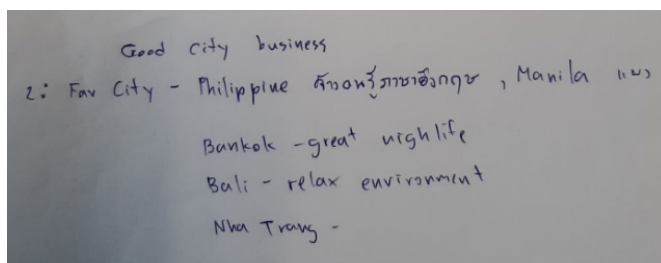 Good city business
2: Fav City - Philippine จ้างคนรู้ภาษาอังกฤษ , Manila แพง
Bankok - great nighlife
Bali - relax environment
Nha Trang -